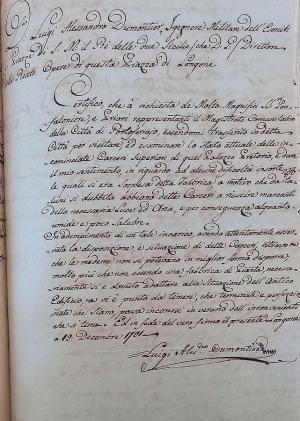 D. Luigi Alessandro Dumontier, Ingegnere Militare dell' Eserciti
di S. M. il Re delle due Sicilie, che D. G. Direttore
Opere di questa Piazza di Longone
Certifico, che a richiesta de Molto Magnifici il Gon
faloniere, e Priori rappresentanti il Magistrato Comunitativo
della Città di Portoferajo, essendomi trasferito in detta
Città per visitare, ed esaminare lo Stato attuale delle in
cominciate Carceri Superiori di quel Palazzo Pretorio, e dare
il mio sentimento, in riguardo ad alcune difficoltà insorte,
le quali si era sospesa detta Fabbrica, a motivo che da ta
luni si dubbita dobbiano dette Carceri a riuscire mancanti
della necessaria Luce ed Aria, e per conseguenza alquanto
umide e poco Salubri.
In adempimento di un tale incarico, avendo attentamente osser
vata la disposizione, e situazione di dette Carceri, ritrovo
che le medeme non si potevano in miglior forma disporre,
molto più che non essendo una fabbrica di Pianta, necessa
riamente si è dovuto adattare alla Situazione dell' antico
Edifizio, ne vi è punto da temere, che terminate, e perfezzio
nate che siano possa incorrersi in veruno dell' inconvenienti
che si teme. Ed in fede del vero, firmo il presente Longone
a 19. Decembre 1781
Luigi Ales.dro Dumontier